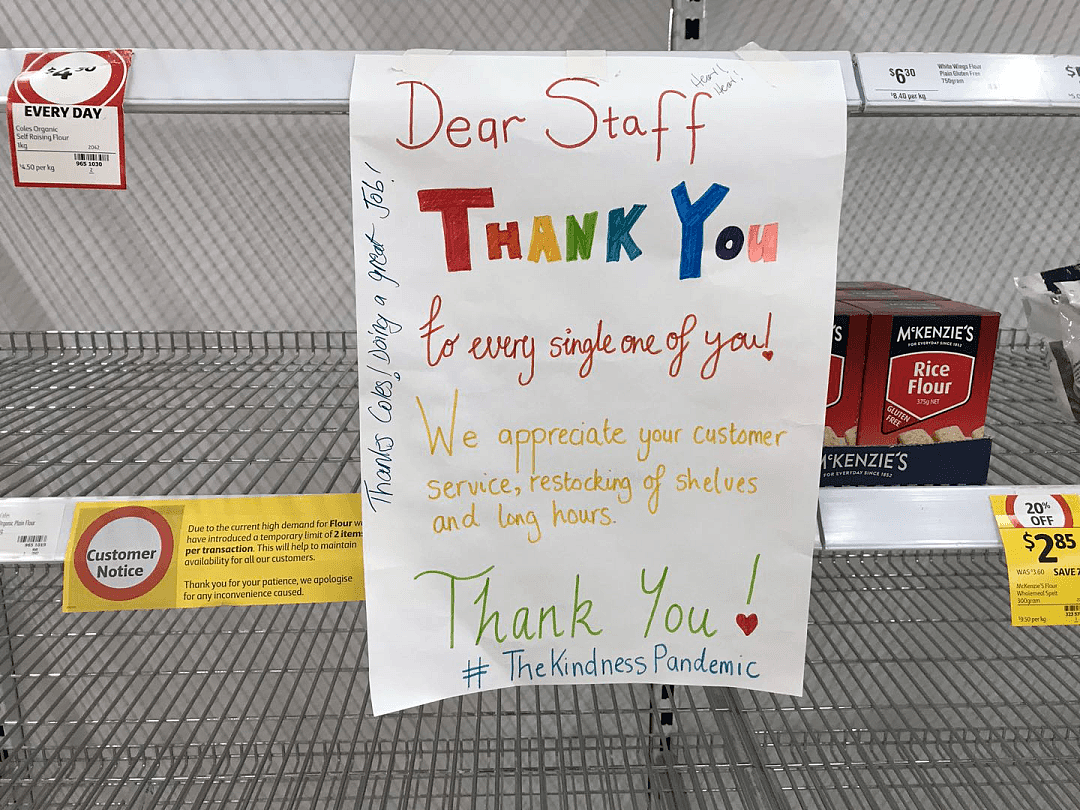 $4.50
EVERY DAY
Coles Organic
Self Raising Flour
1kg
2042
$4.50 per kg
965 1030
2
$6.30
$8.40 per kg
White Wings Flour
Plain Gluten Free
750gram
Dear Staff
Hear! Hear!!
THANK YOU
to every single one of you!
We appreciate your customer
service, restocking of shelves
and long hours.
Thank You!
# TheKindnessPandemic
Thanks Coles! Doing a great Job!
McKENZIE'S
FOR EVERYDAY SINCE 1852
Rice
Flour
375g NET
GLUTEN
FREE
McKENZIE'S
FOR EVERYDAY SINCE 1852
Plain Flour
Customer
Notice
Due to the current high demand for Flour we
have introduced a temporary limit of 2 items
per transaction. This will help to maintain
availability for all our customers.
Thank you for your patience, we apologise
for any inconvenience caused.
20%
OFF
$2.85
WAS $3.60 SAVE
McKenzie's Flour
Wholemeal Spelt
300gram
$9.50 per kg